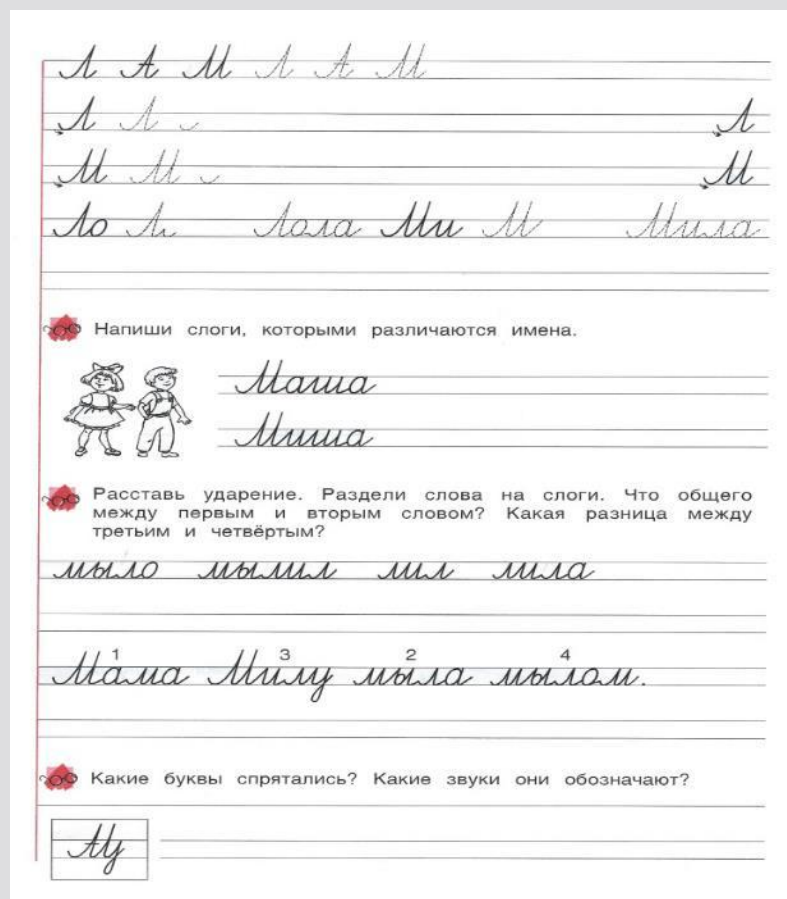 Л А М Л А М
Л Л Л
М М М
Ло Л Лола Ми М Мила
Напиши слоги, которыми различаются имена.
Маша
Миша
Расставь ударение. Раздели слова на слоги. Что общего
между первым и вторым словом? Какая разница между
третьим и четвёртым?
мыло мылил лил лила
1 3 2 4
Мама Милу мыла мылом.
Какие буквы спрятались? Какие звуки они обозначают?